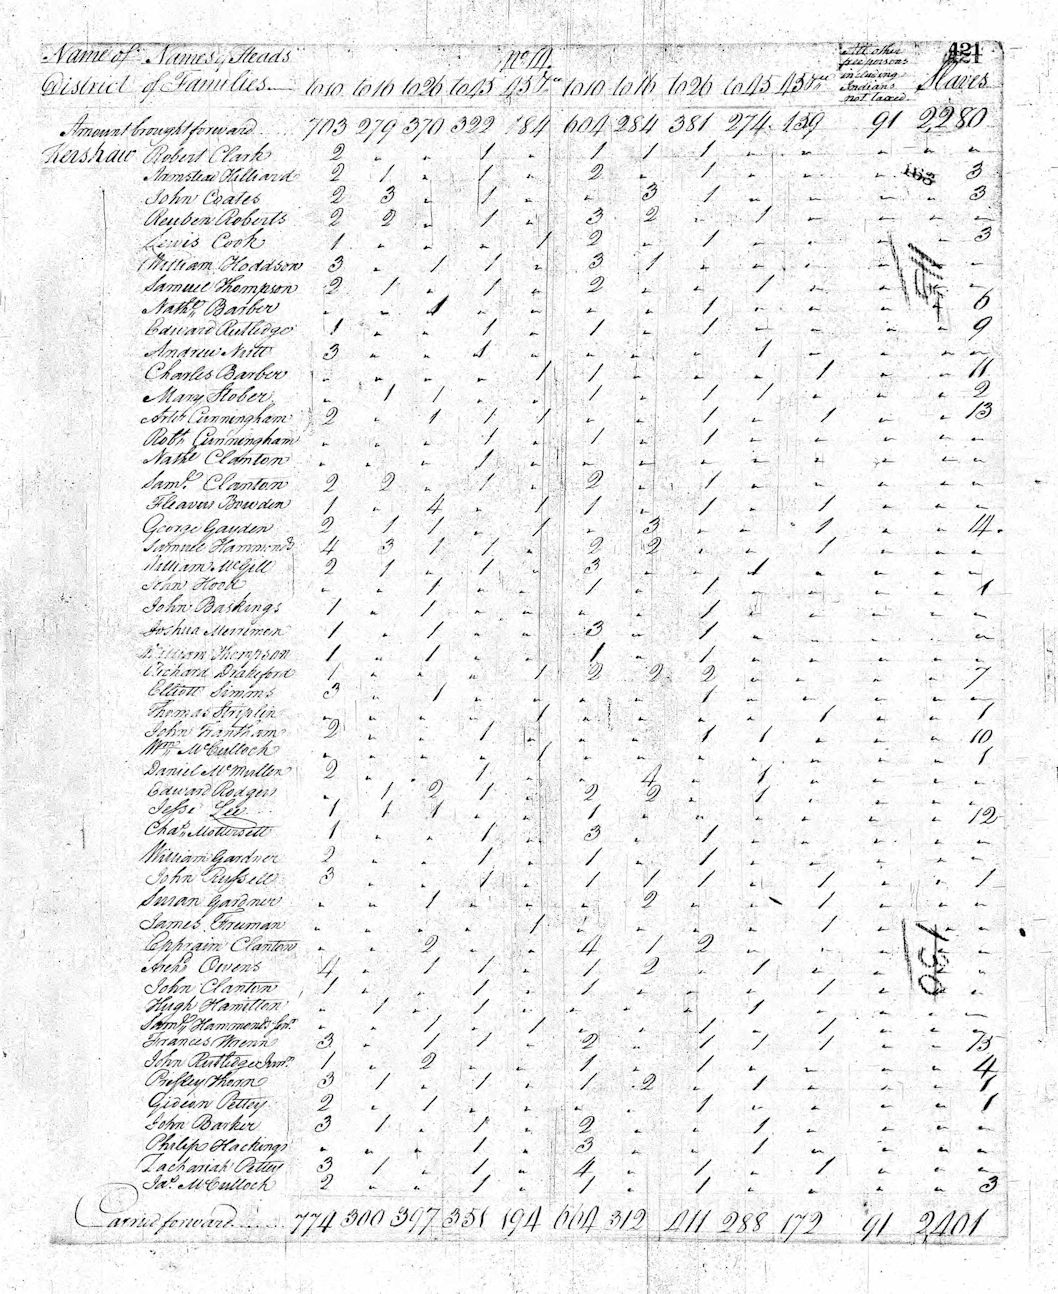 Name of Names of Heads All other 421
District of Families to 10 to 16 to 26 to 45 45 to 10 to 16 to 26 to 45 45 free persons including Indians not taxed Slaves
Amount brought forward 703 279 370 322 184 604 284 381 274 139 91 2,280
Kershaw Robert Clark 2 " " 1 " 1 1 1 " " " "
Armstead Hilliard 2 1 " 1 " 2 " 1 " " " 3
163
John Coates 2 3 " 1 " " 3 1 " " " 3
Reuben Roberts 2 2 " 1 " 3 2 " 1 " " "
Lewis Cook 1 " " " 1 2 " 1 " " " 3
William Hoddson 3 " 1 1 " 3 1 " " " " "
Samuel Thompson 2 1 " 1 " 2 " " 1 " " "
Nathl Barber " " 1 " " " " 1 " " " 6
Edward Rutledge 1 " " 1 " 1 " 1 " " " 9
Andrew Nutt 3 " " 1 " " " " 1 " " "
Charles Barber " " " " 1 1 " " " 1 " 11
Mary Stober " 1 1 " " 1 " 1 1 " " 2
Arthr Cunningham 2 " 1 1 1 " " 1 " 1 " 13
Robt Cunningham " " " 1 " 1 " 1 " " " "
Nathl Clanton " " " 1 " " " " " " " "
Saml Clanton 2 2 " 1 " 2 " 1 " " " "
Fleaver Bowden 1 " 4 " 1 1 " 1 " 1 " "
George Gayden 2 1 1 " 1 " 3 " " 1 " 4
Samuel Hammonds 4 3 1 1 " 2 2 " " 1 " "
William McGill 2 1 " 1 " 3 " " 1 " " "
John Hood " " 1 " " 1 " 1 " " " 1
John Baskings 1 " 1 " " " " 1 " " " "
Joshua Merrimen 1 " 1 " " 3 " 1 " " " "
William Thompson 1 " 1 " " 1 " 1 " " " "
Richard Drakeford 1 " " " 1 2 2 2 " " " 7
Elliott Simms 3 " 1 " " " " 1 " " " "
Thomas Striplin " " " " 1 " " " " 1 " 1
John Trantham 2 " " 1 " " " 1 1 " " 10
Wm McCulloch " " " " 1 " " " " " " 1
Daniel McMullen 2 " " 1 " " 4 " 1 " " "
Edward Rodgers " 1 2 1 " 2 2 " 1 " " "
Jesse Lee 1 1 1 " " 1 " " " " " 12
Chas Mottersett 1 " " 1 " 3 " 1 " " " "
William Gardner 2 " " 1 " 1 " 1 " " " "
John Russell 3 " " 1 " 1 1 1 " 1 " 1
Susan Gardner " " 1 " " " 2 " " 1 " "
James Freeman " " " " 1 " " " " 1 " "
Ephraim Clanton " " 2 " " 4 1 2 " " " "
Archd Owens 4 " 1 1 " 1 2 " 1 " " "
John Clanton 1 " " 1 " " " " " 1 " "
Hugh Hamilton " 1 " 1 " " " " 1 " " "
Saml Hammonds Senr " " 1 " 1 " " 1 " 1 " "
Frances Threnn 3 " 1 1 " 2 " 1 1 1 " 15
John Rutledge Junr 1 " 2 " " 1 " 1 " " " 4
Presley Thorn 3 1 " 1 " 1 2 " 1 " " 1
Gideon Pettey 2 " 1 " " " " 1 " " " 1
John Barker 3 1 " 1 " 2 " " 1 " " "
Philip Hackings " " " 1 " 3 " " 1 " " "
Zachariah Pettey 3 1 " 1 " 4 " 1 " 1 " "
Jas McCulloch 2 " " 1 " 1 " 1 " " " 3
Carried forward 774 300 397 351 194 664 312 411 288 172 91 2,401